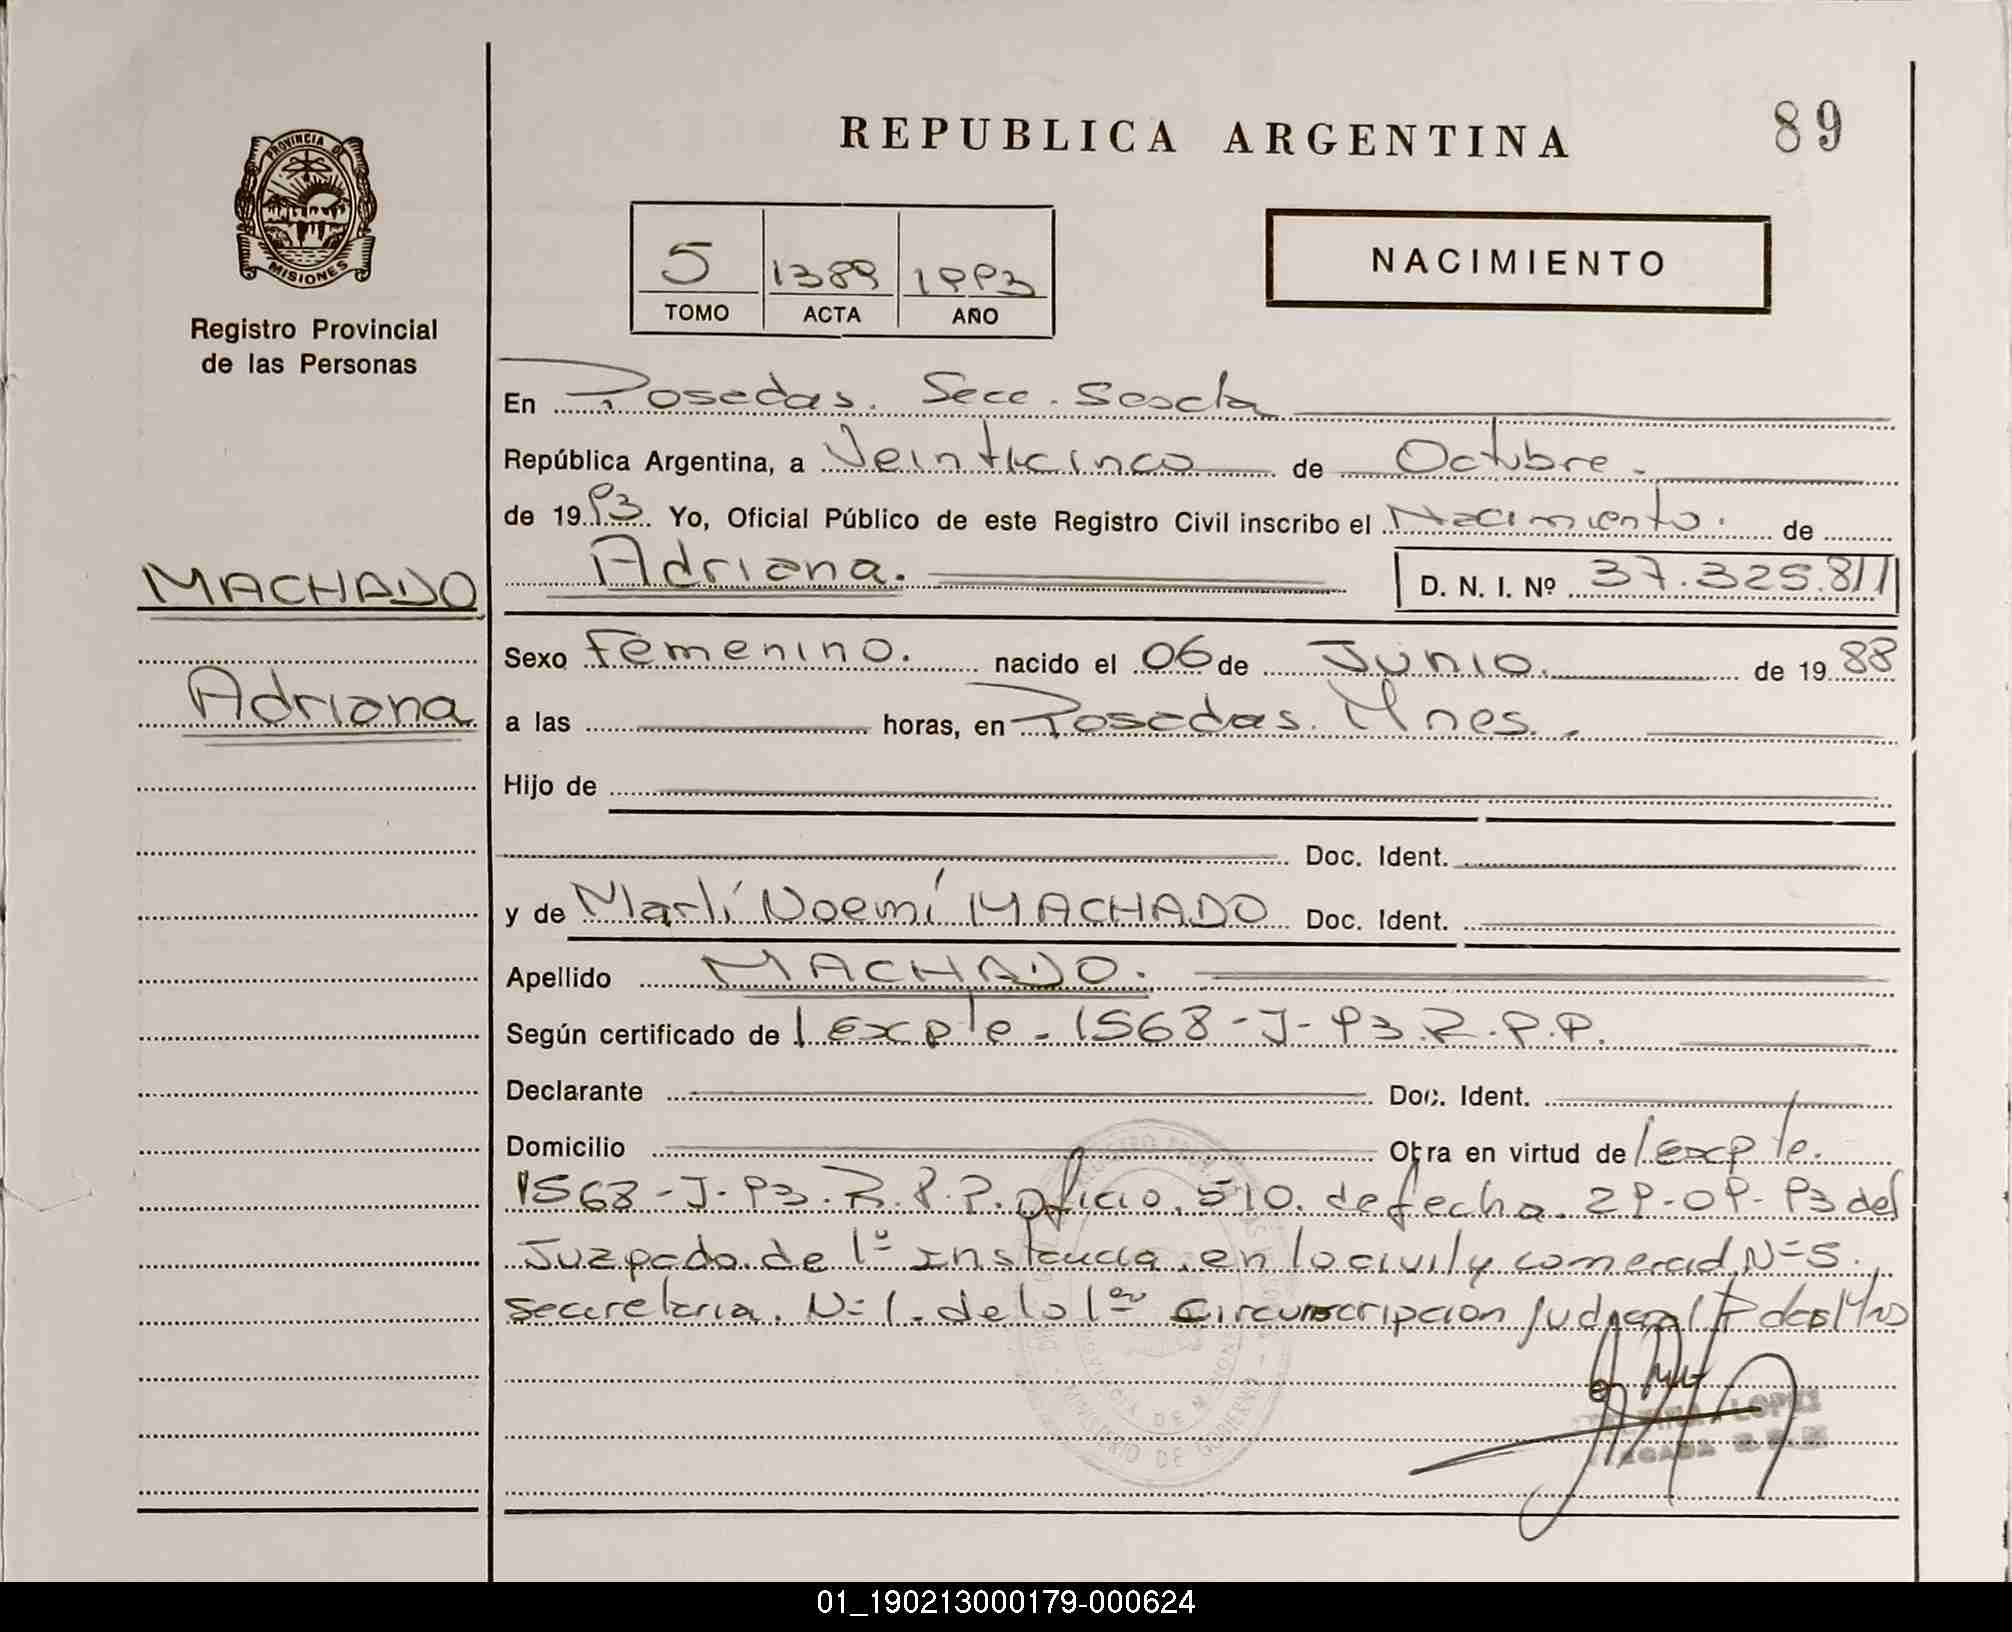 REPUBLICA ARGENTINA
89
PROVINCIA DE
MISIONES
Registro Provincial
de las Personas
5 1389 1993
TOMO ACTA AÑO
NACIMIENTO
En Posadas. Secc. Sexta
República Argentina, a Veinticinco de Octubre.
de 1993. Yo, Oficial Público de este Registro Civil inscribo el Nacimiento. de
MACHADO
Adriana.
D. N. I. Nº 37.325.811
Sexo Femenino. nacido el 06 de Junio. de 1988
Adriana
a las horas, en Posadas. Mnes.
Hijo de
Doc. Ident.
y de Marlí Noemí MACHADO Doc. Ident.
Apellido MACHADO.
Según certificado de Expte. 1568-J-93.R.P.P.
Declarante Doc. Ident.
Domicilio Otra en virtud de Expte.
1568-J-93.R.P.P. oficio. 510. de fecha. 29-09-93 del
Juzgado de 1º Instancia, en lo civil y comercial, Nº5.
Secretaria. Nº1. de la 1era Circunscripcion Judicial Pdas Mns
MINISTERIO DE GOBIERNO
LOPEZ
01_190213000179-000624